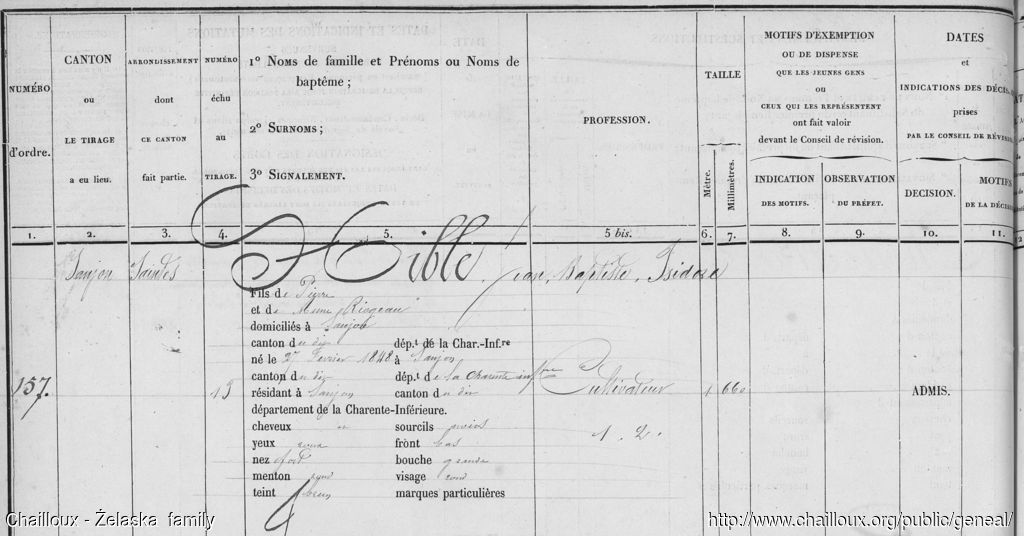 NUMÉRO
d'ordre.
CANTON
ou
LE TIRAGE
a eu lieu.
ARRONDISSEMENT
dont
CE CANTON
fait partie.
NUMÉRO
échu
au
TIRAGE.
1º NOMS de famille et Prénoms ou Noms de
baptême ;
2º SURNOMS ;
3º SIGNALEMENT.
PROFESSION.
TAILLE
Mètre.
Millimètres.
MOTIFS D'EXEMPTION
OU DE DISPENSE
QUE LES JEUNES GENS
ou
CEUX QUI LES REPRÉSENTENT
ont fait valoir
devant le Conseil de révision.
INDICATION
DES MOTIFS.
OBSERVATION
DU PRÉFET.
DATES
et
INDICATIONS DES DÉCIS
prises
PAR LE CONSEIL DE RÉVIS
DÉCISION.
MOTIFS
DE LA DÉCI
1. 2. 3. 4. 5. 5 bis. 6. 7. 8. 9. 10. 11.
Saujon Saintes Hible, Jean, Baptiste, Isidore
Fils de Pierre
et de Marie
domiciliés à Saujon
canton du dit dép.t de la Char.-Inf.re
né le 27 Fevrier 1848 à Saujon
157. canton du dit dép.t de la Charente infre Cultivateur 1 660 ADMIS.
résidant à Saujon canton du dit
département de la Charente-Inférieure.
cheveux sourcils noirs 1. 2.
yeux front bas
nez fort bouche grande
menton rond visage rond
teint brun marques particulières
Chailloux - Żelaska family
http://www.chailloux.org/public/geneal/